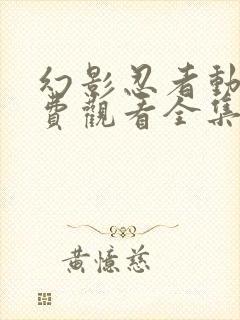 幻影忍者動
費觀看全集
黃憶慈